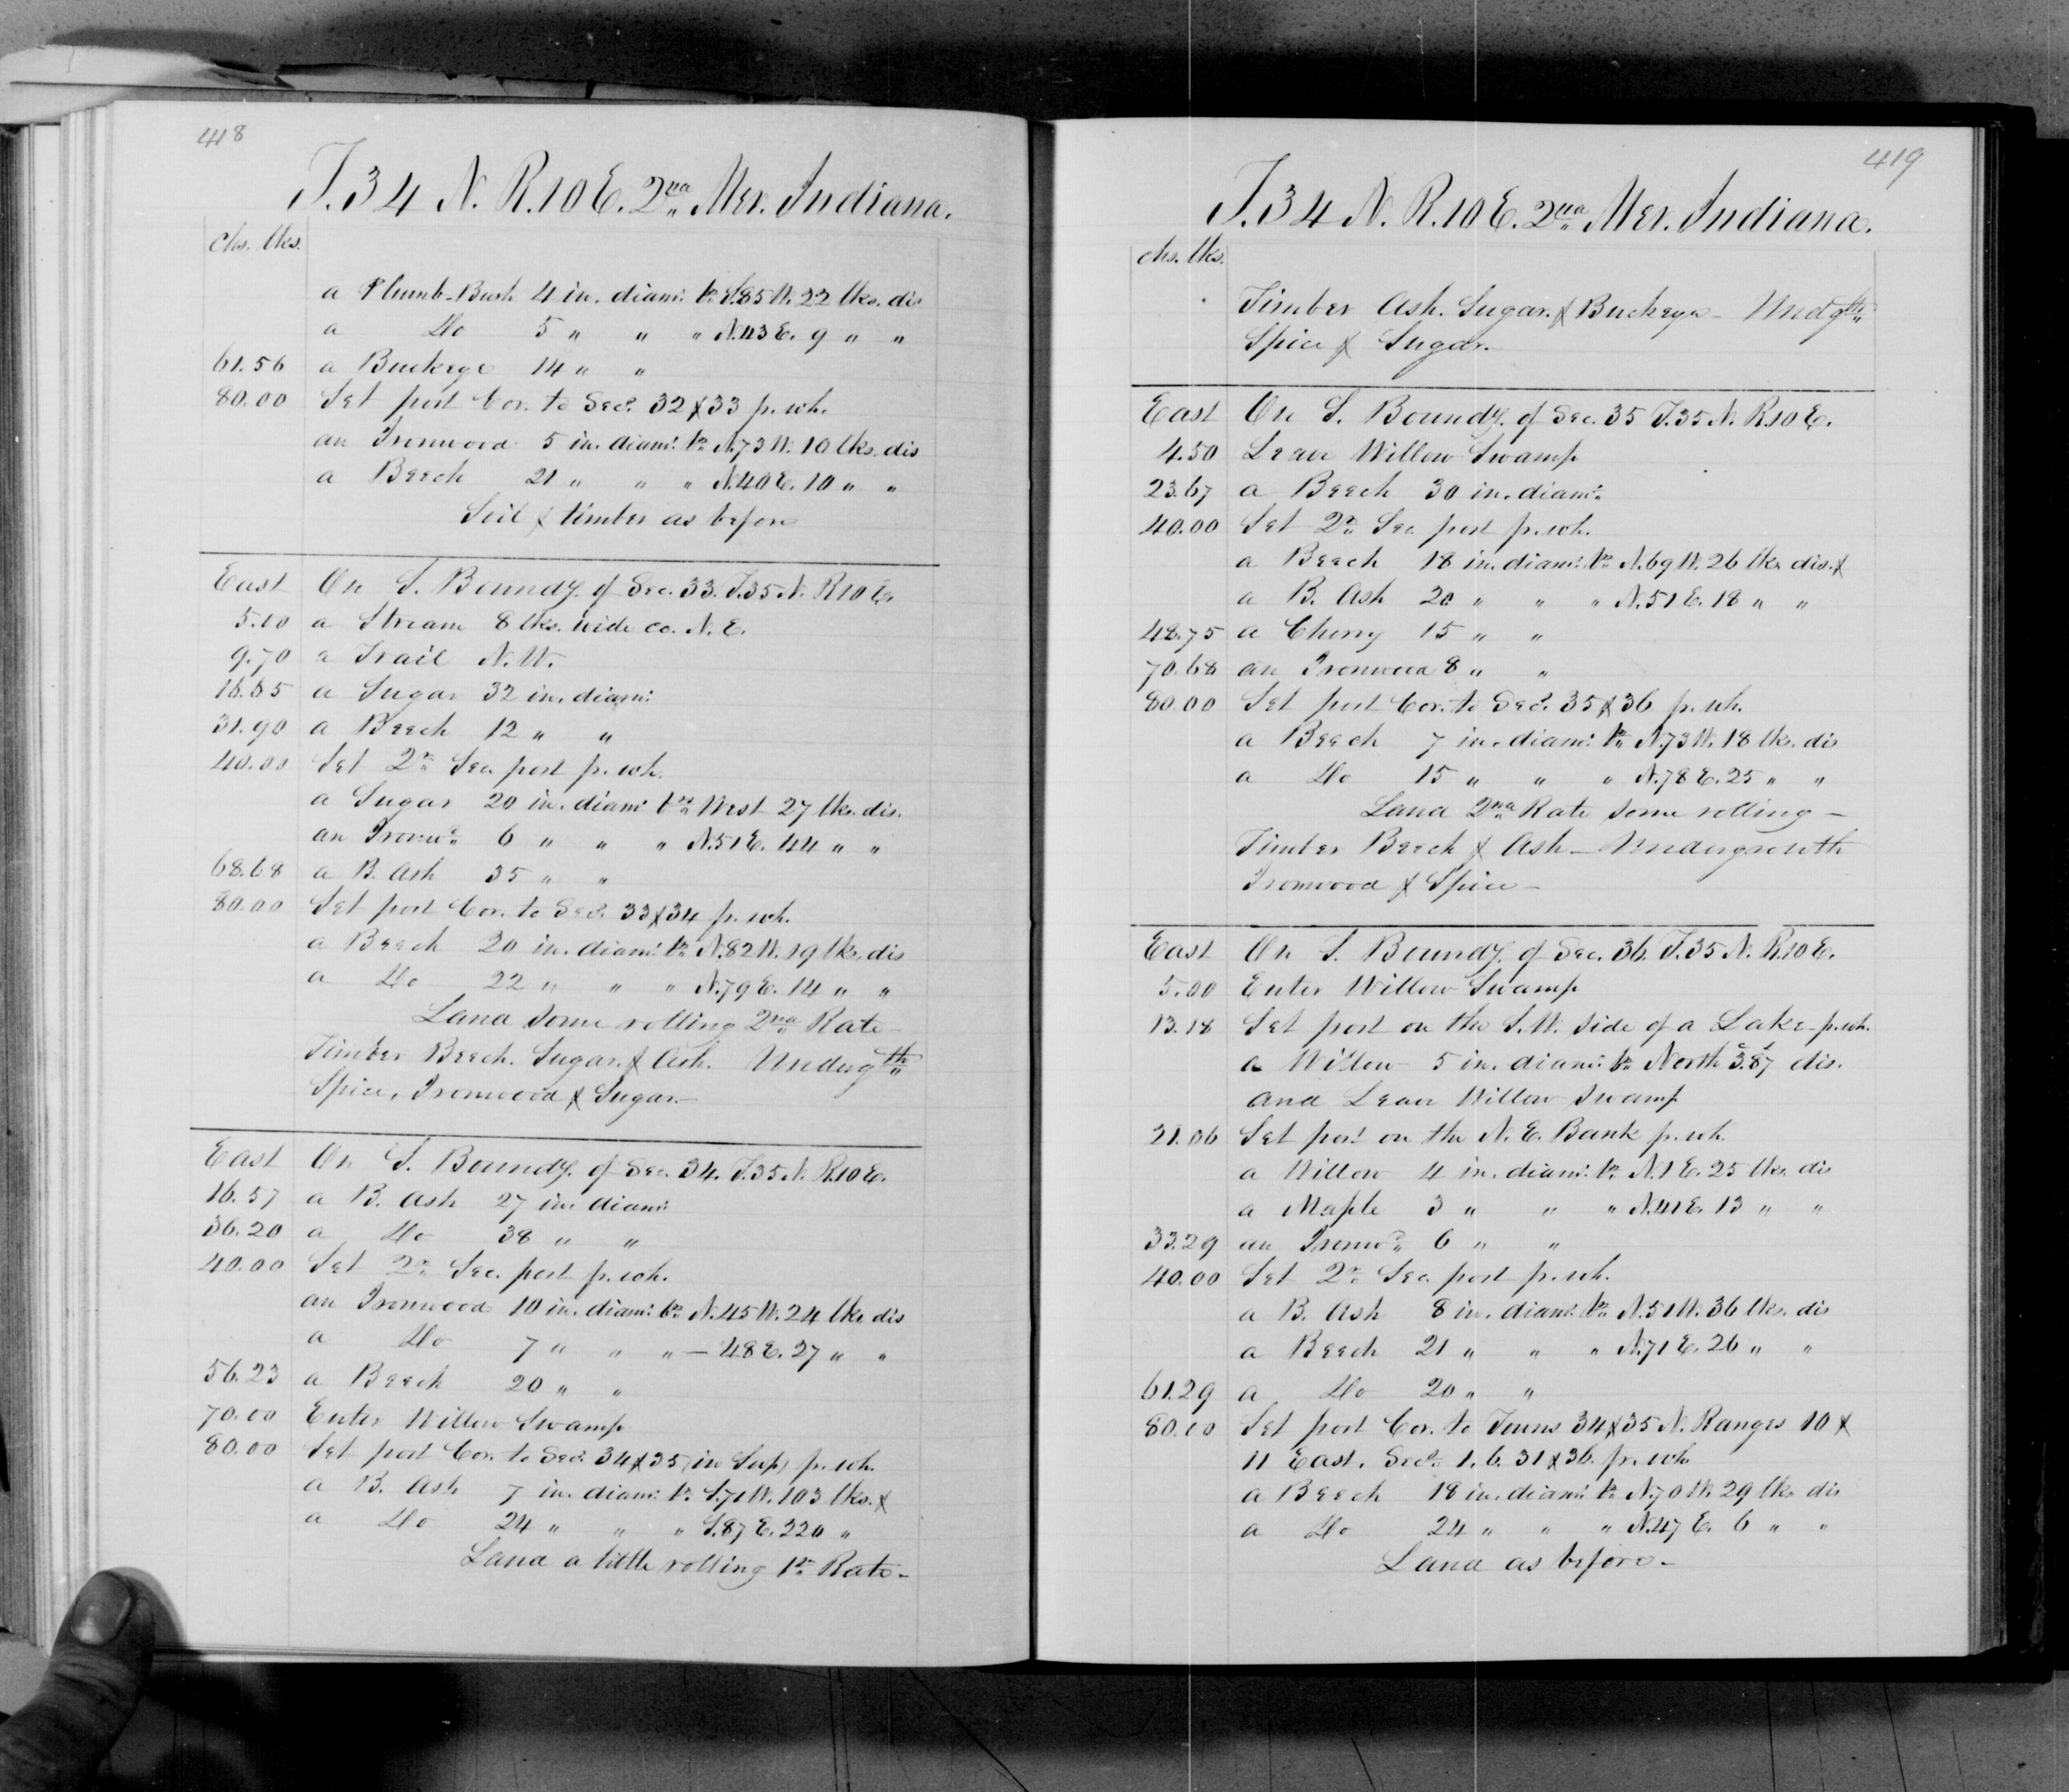 418
T.34 N. R.10 E. 2nd Mer. Indiana.
chs. lks.
a Plumb-Bush 4 in. diam: br. S.85 W. 22 lks. dis
a Do 5 " " " N.43 E. 9 " "
61.56 a Buckeye 14 " "
80.00 Set post Cor. to Secs. 32 & 33 fr. wh.
an Ironwood 5 in. diam: br. N.73 W. 10 lks. dis
a Beech 21 " " " N.40 E. 10 " "
Soil & timber as before
East On S. Boundy. of Sec. 33. T.35 N. R.10 E.
5.10 a Stream 8 lks. wide co. N. E.
9.70 a Trail N. W.
16.65 a Sugar 32 in. diam:
31.90 a Beech 12 " "
40.00 Set 2r. Sec. post fr. wh.
a Sugar 20 in. diam: br. West 27 lks. dis.
an Ironwd. 6 " " " N.51 E. 44 " "
68.68 a B. Ash 35 " "
80.00 Set post Cor. to Secs. 33 & 34 fr. wh.
a Beech 20 in. diam: br. N.82 W. 19 lks. dis
a Do 22 " " " N.79 E. 14 " "
Land some rolling 2nd Rate
Timber Beech. Sugar. & Ash. Undergth
Spice, Ironwood & Sugar.-
East On S. Boundy. of Sec. 34. T.35 N. R.10 E.
16.57 a B. Ash 27 in. diam:
36.20 a Do 38 " "
40.00 Set 2r. Sec. post fr. wh.
an Ironwood 10 in. diam: br. N.45 W. 24 lks. dis
a Do 7 " " " - 48 E. 27 " "
56.23 a Beech 20 " "
70.00 Enter Willow Swamp
80.00 Set post Cor. to Secs. 34 & 35 (in Swp) fr. wh.
a B. Ash 7 in. diam: br. S.71 W. 103 lks. &
a Do 24 " " " S.87 E. 220 "
Land a little rolling 1st Rate-
419
T.34 N. R.10 E. 2nd Mer. Indiana.
chs. lks.
Timber Ash. Sugar. & Buckeye - Undgth
Spice & Sugar.
East On S. Boundy. of Sec. 35 T.35 N. R.10 E.
4.50 Leave Willow Swamp
23.67 a Beech 30 in. diam:
40.00 Set 2r. Sec. post fr. wh.
a Beech 18 in. diam: br. N.69 W. 26 lks. dis. &
a B. Ash 20 " " " N.51 E. 18 " "
48.75 a Cherry 15 " "
70.68 an Ironwood 8 " "
80.00 Set post Cor. to Secs. 35 & 36 fr. wh.
a Beech 7 in. diam: br. N.73 W. 18 lks. dis
a Do 15 " " " N.78 E. 25 " "
Land 2nd Rate some rolling -
Timber Beech & Ash - Undergrowth
Ironwood & Spice -
East On S. Boundy. of Sec. 36. T.35 N. R.10 E.
5.00 Enter Willow Swamp
13.18 Set post on the S.W. side of a Lake - fr. wh.
a Willow 5 in. diam: br. North 3.87 dis.
and Leave Willow Swamp
21.06 Set post on the N. E. Bank fr. wh.
a Willow 4 in. diam: br. N.1 E. 25 lks. dis
a Maple 3 " " " N.41 E. 13 " "
33.29 an Ironwd. 6 " "
40.00 Set 2r. Sec. post fr. wh.
a B. Ash 8 in. diam: br. N.51 W. 36 lks. dis
a Beech 21 " " " N.71 E. 26 " "
61.29 a Do 20 " "
80.10 Set post Cor. to Towns 34 & 35 N. Ranges 10 &
11 East. Secs. 1. 6. 31 & 36. fr. wh.
a Beech 18 in. diam: br. N.70 W. 29 lks. dis
a Do 24 " " " N.47 E. 6 " "
Land as before -